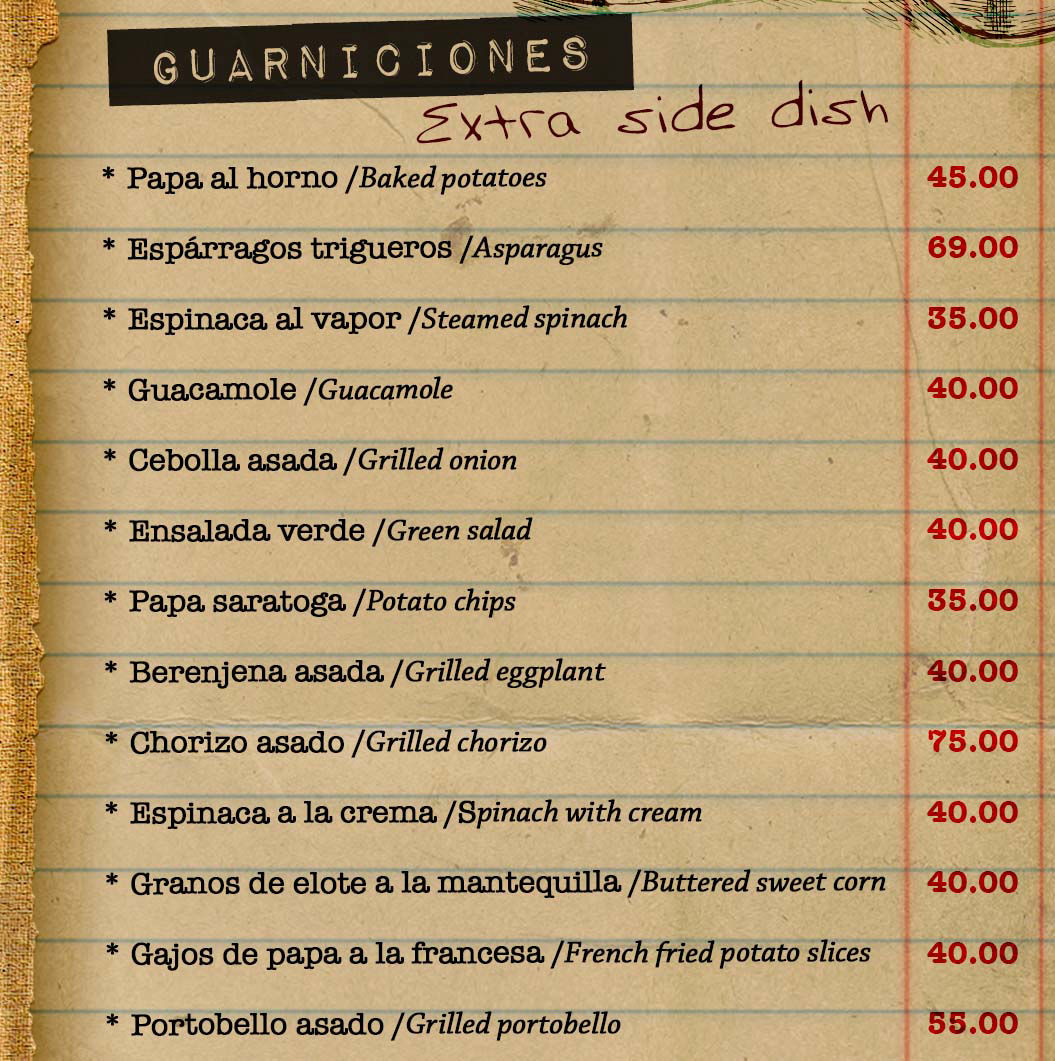 GUARNICIONES
Extra side dish
* Papa al horno /Baked potatoes 45.00
* Espárragos trigueros /Asparagus 69.00
* Espinaca al vapor /Steamed spinach 35.00
* Guacamole /Guacamole 40.00
* Cebolla asada /Grilled onion 40.00
* Ensalada verde /Green salad 40.00
* Papa saratoga /Potato chips 35.00
* Berenjena asada /Grilled eggplant 40.00
* Chorizo asado /Grilled chorizo 75.00
* Espinaca a la crema /Spinach with cream 40.00
* Granos de elote a la mantequilla /Buttered sweet corn 40.00
* Gajos de papa a la francesa /French fried potato slices 40.00
* Portobello asado /Grilled portobello 55.00